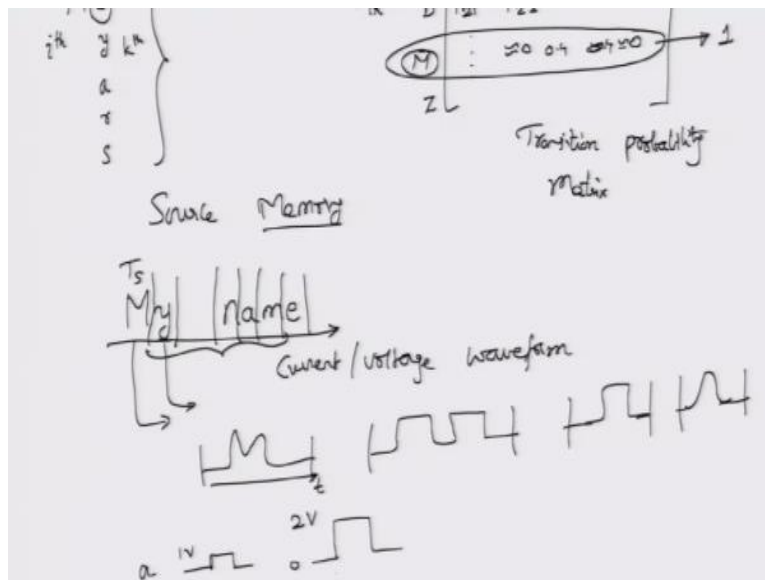 ith y kth
a
r
s
M ≈0 0.4 ≈0 → 1
Z
Transition probability
Matrix
Source Memory
Ts
My name
Current/voltage waveform
t
2V
a 1V 0